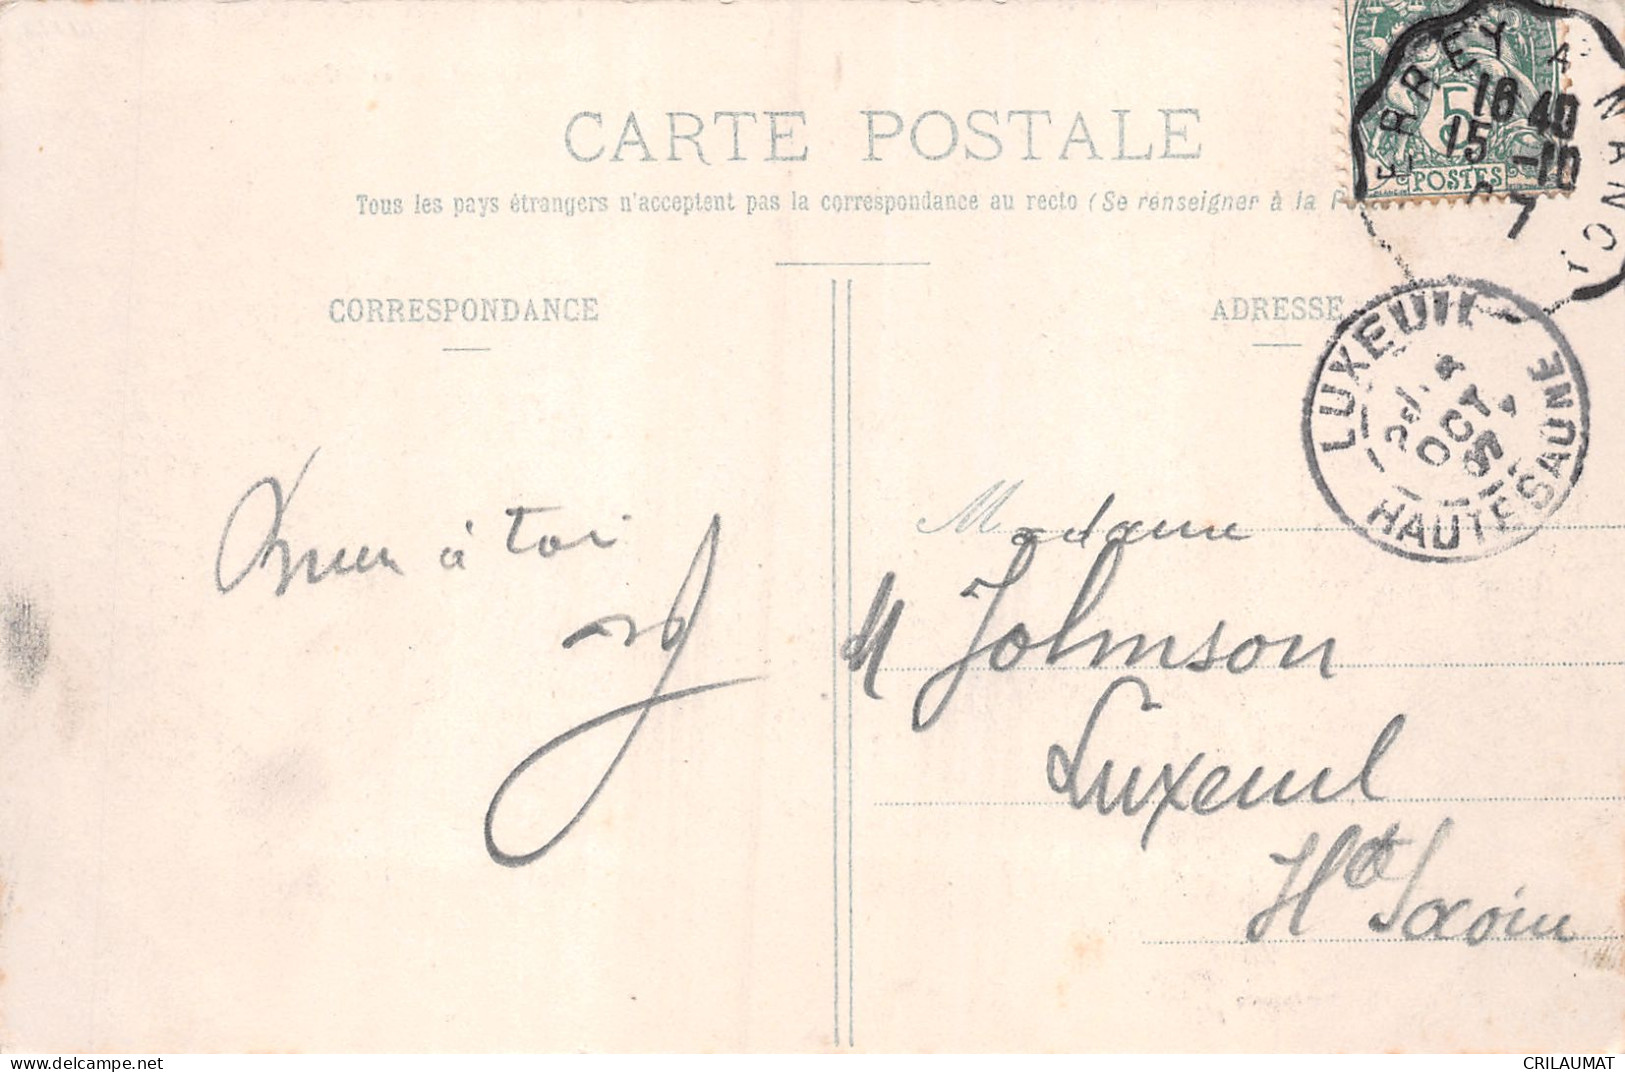 CARTE POSTALE
Tous les pays étrangers n'acceptent pas la correspondance au recto (Se renseigner à la
CORRESPONDANCE
ADRESSE
5
POSTES
ERREY A NANCY
16 40
15 -10
7
LUXEUIL
OCT
HAUTE SAONE
à toi
Madame
M Johnson
Luxeuil
Hte Saône
CRILAUMAT